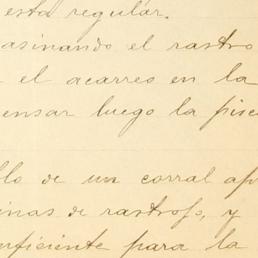 esta regular.
asinando el rastro
el acarreo en la
ensar luego la pisc
llo de un corral ap
inas de rastrojo, y
uficiente para la